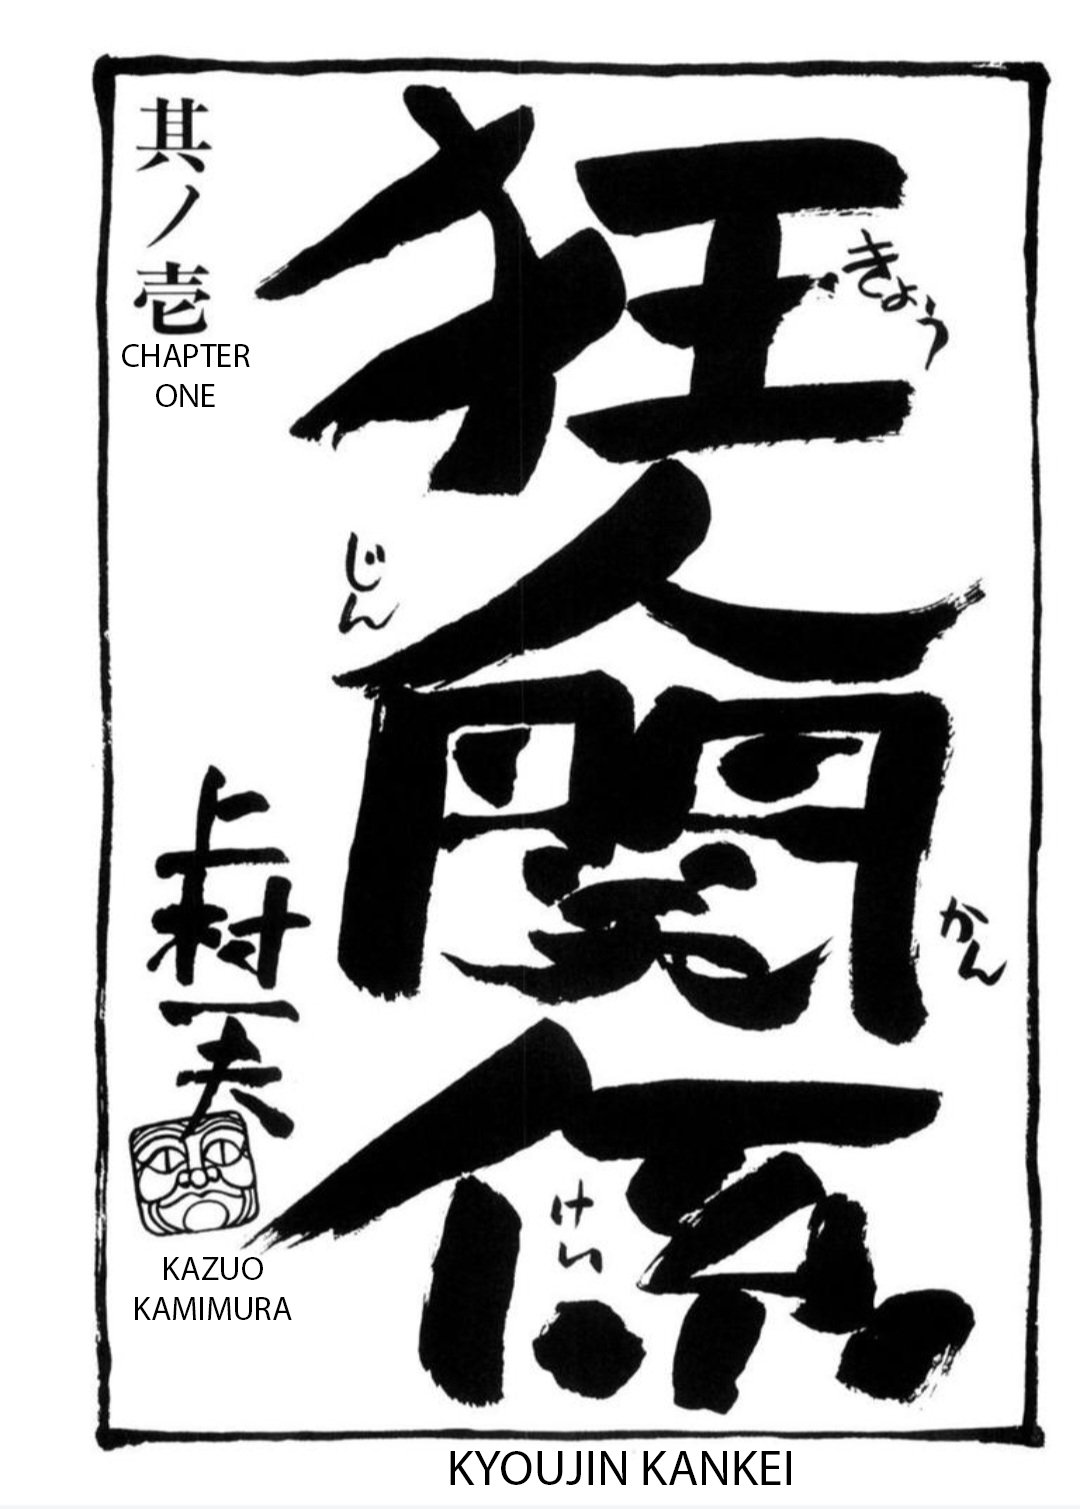 狂人関係
きょう
じん
かん
けい
其ノ壱
CHAPTER
ONE
上村一夫
KAZUO
KAMIMURA
KYOUJIN KANKEI